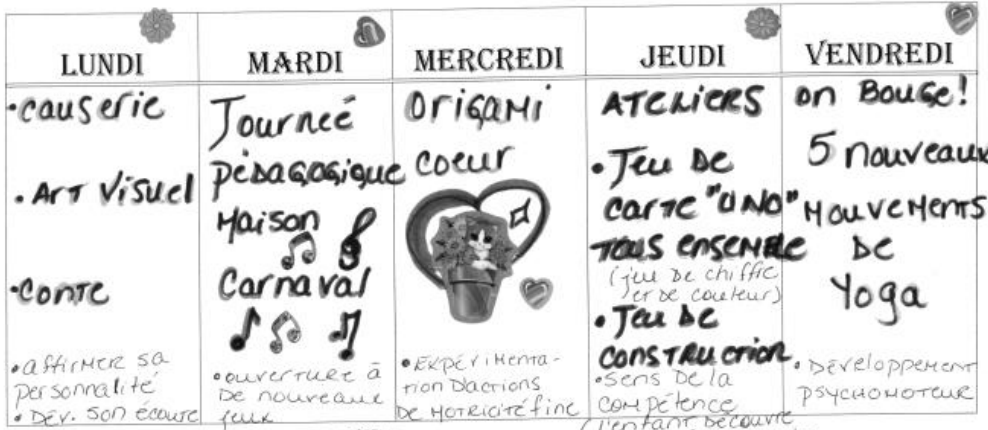 LUNDI
•causerie
•ART Visuel
•CONTE
•affirmer sa
personnalité
•Dév. son écoute
MARDI
Journeé
pédagogique
Maison
Carnaval
•ouverture à
de nouveaux
jeux
MERCREDI
ORIGAMI
coeur
•EXPériMenta-
tion D'actions
De MotricitéFine
JEUDI
ATELIERS
•Jeu De
carte "UNO"
Tous ensemble
(jeu de chiffre
et de couleur)
•Jeu De
CONSTRUCTION
•sens De la
compétence
(l'enfant Découvre
VENDREDI
on Bouge!
5 nouveaux
MouveMents
De
Yoga
•Développement
psychomoteur